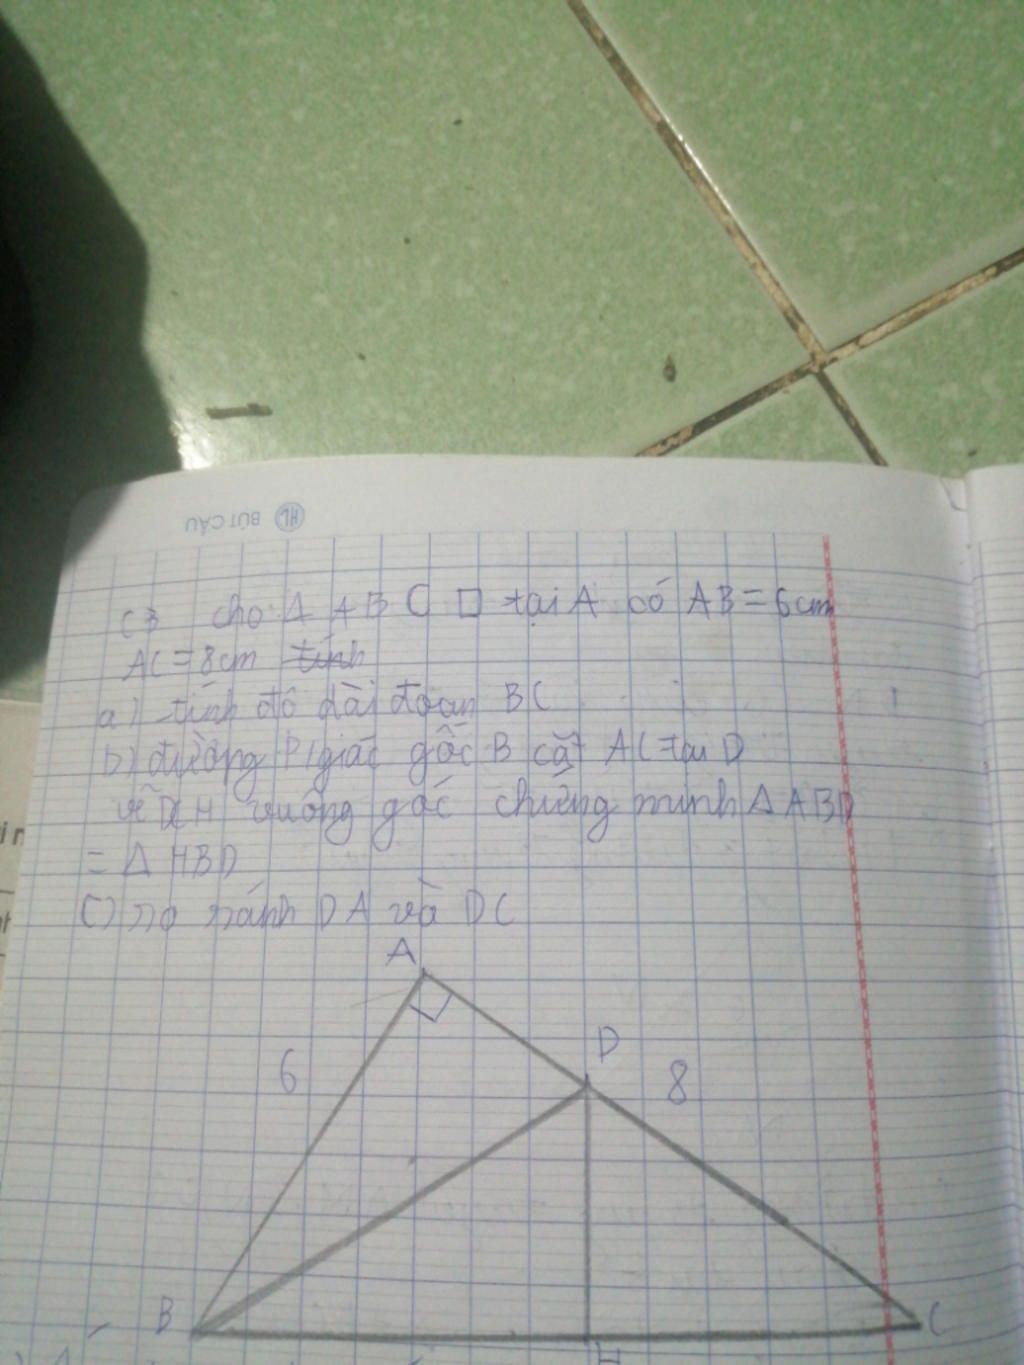 BÚT CÂU HL
C3 cho Δ ABC □ tại A có AB = 6cm
AC = 8cm tính
a) tính độ dài đoạn BC
b) đường P/giác gốc B cắt AC tại D
vẽ DH vuông góc chứng minh Δ ABD
= Δ HBD
C) so sánh DA và DC
A
D
6
8
B
C
H